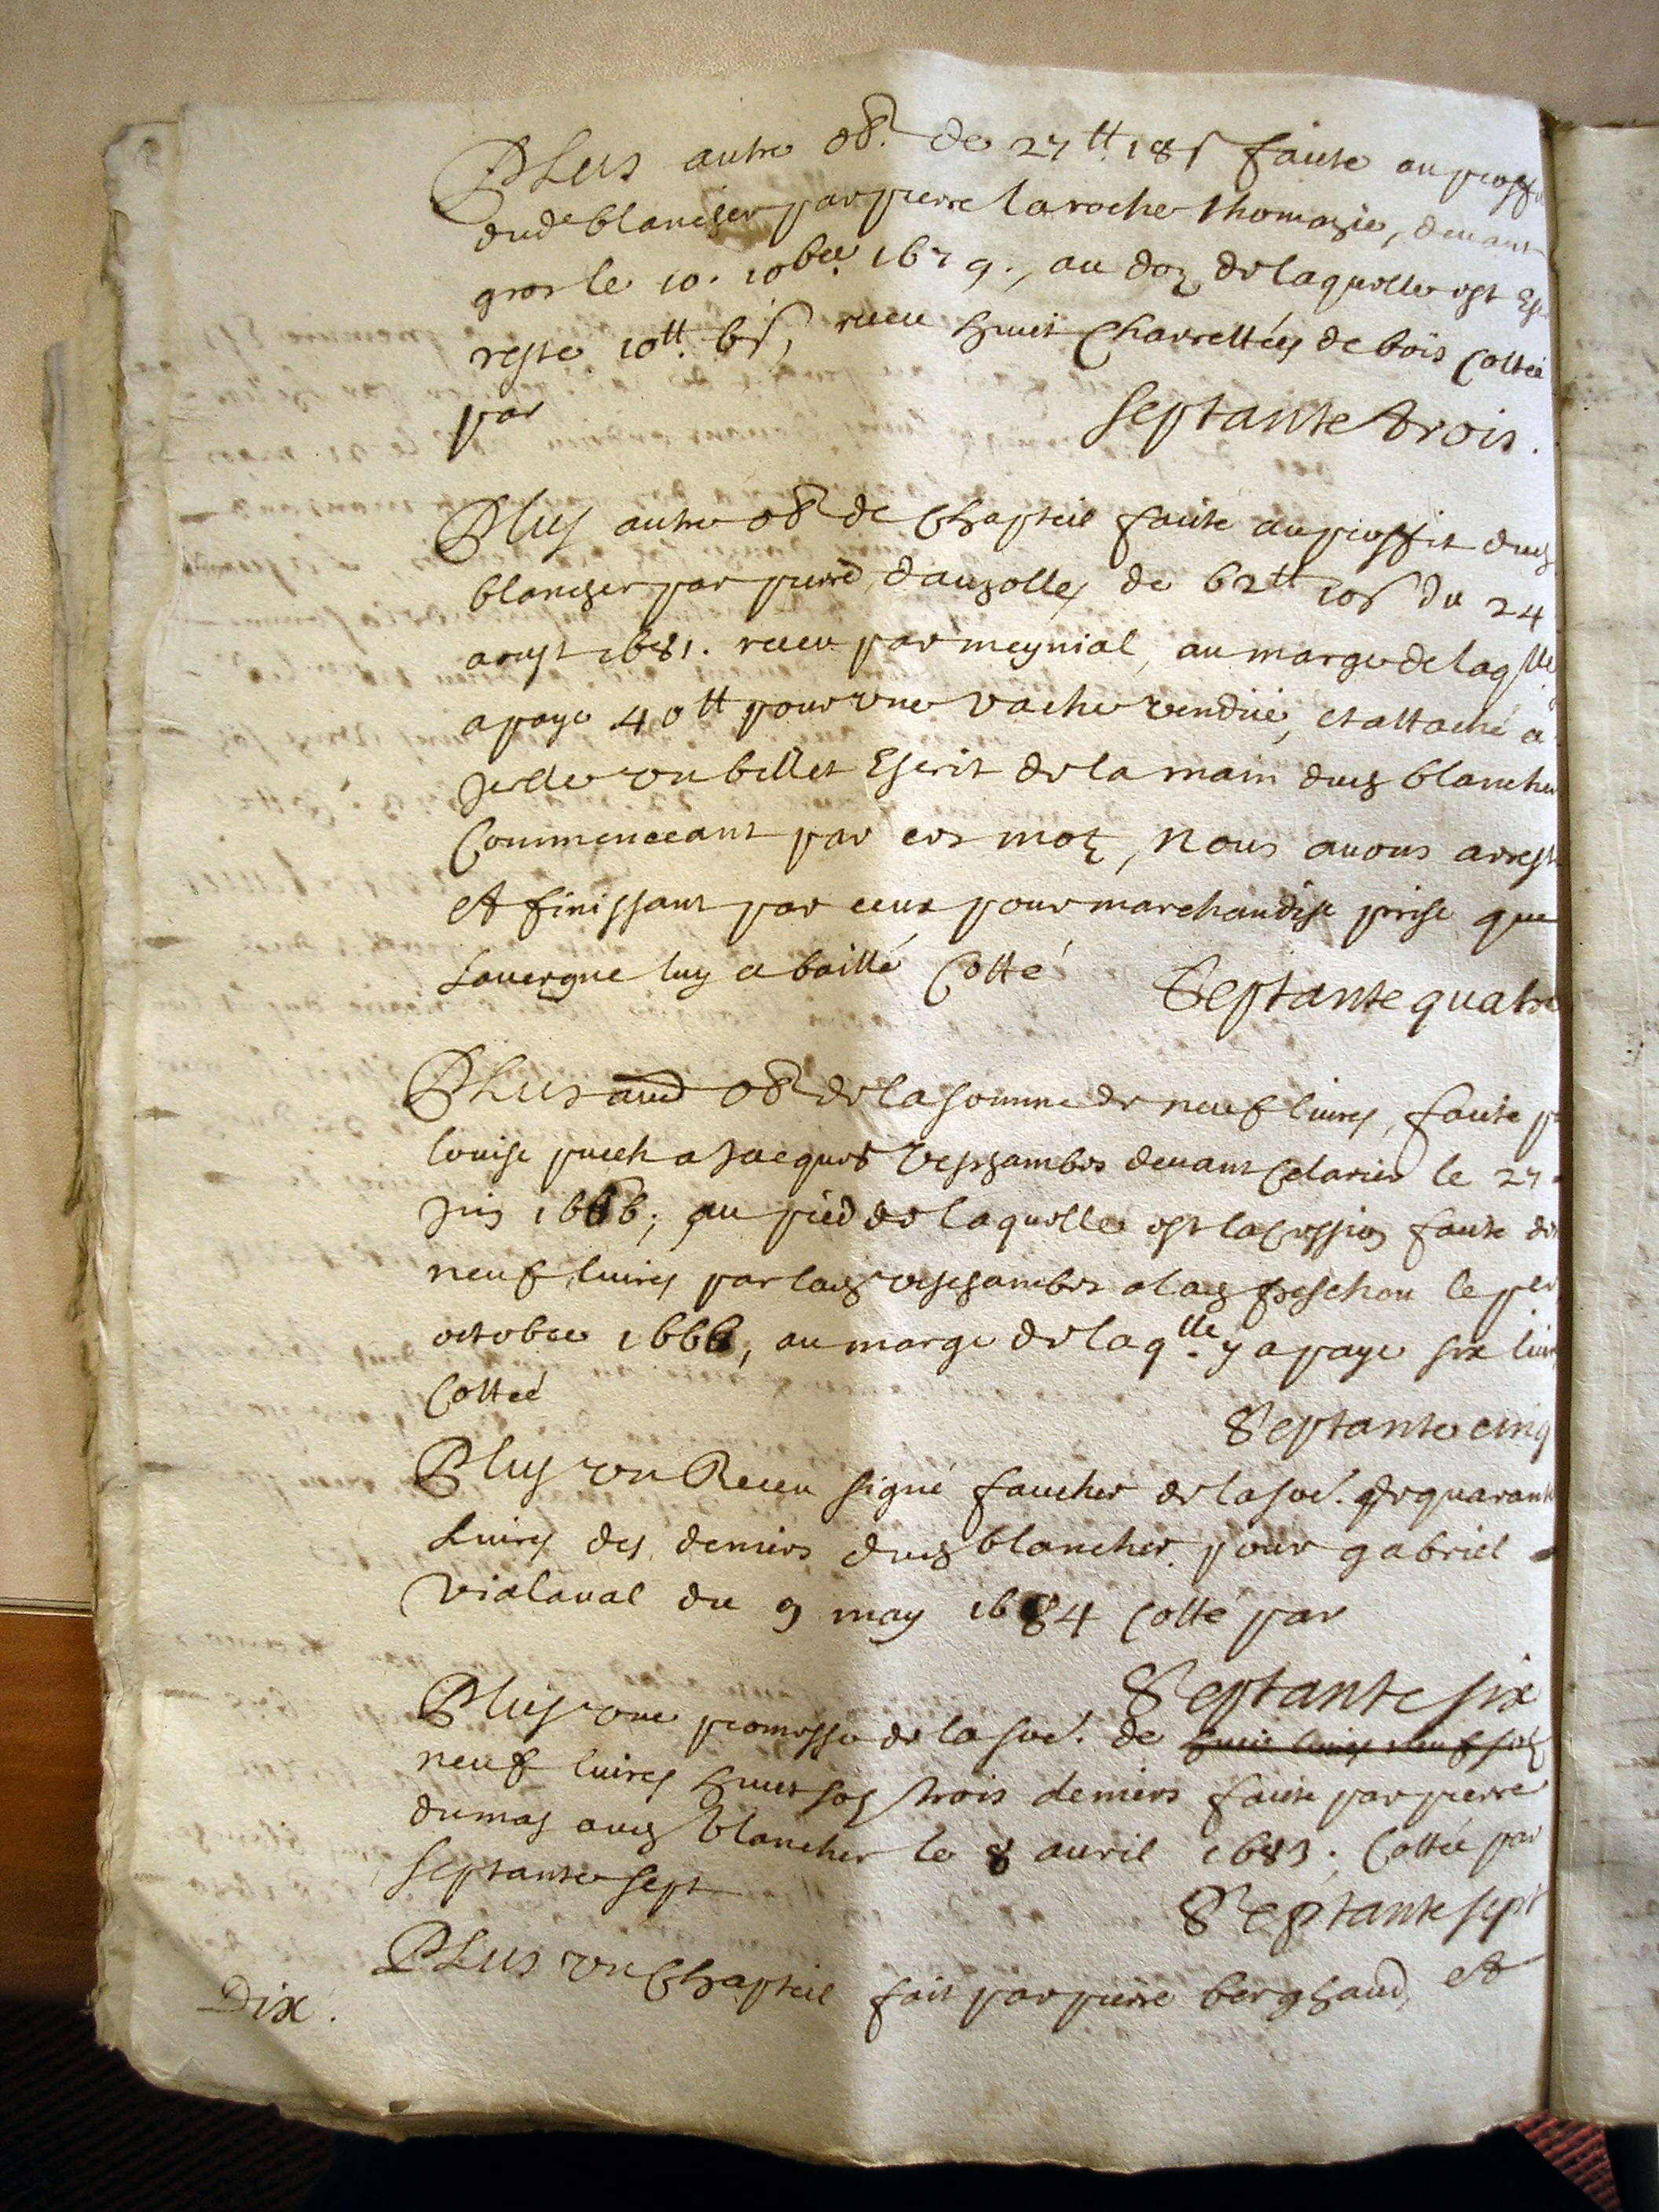 Plus autre ob. de 27 tt. 18 s faite au proffit
dud blancher par pierre laroche thomazie, deuant
gros le 10. 10bre 1679., au doz de laquelle est
reste 10 tt. 6 s, receu huict Charrettées de bois Cottée
par
septante trois.
Plus autre ob de Chapteil faite au proffit dud
blancher par pierre dauzolles de 62 tt 10 s du 24
aoust 1681. receu par meynial, au marge de laqlle
a paye 40 tt pour vne vache vendüe, et attaché a
Jcelle vn billet Escrit de la main dud blancher
Commenceant par ces motz, Nous auons arresté
et finissant par ceux pour marchandise prise que
Lauergne luy a baillé Cotté
Septante quatre
Plus aud ob de la somme de neuf liures, faite par
louise puech a Jacques Veschambes deuant Celarier le 27.
Juin 1666; au pied de laquelle est la Cession faite de
neuf liures par lad veschambes a lad freschou le per
octobre 1666, au marge de laqlle. y a paye six liures
Cottée
Septante cinq
Plus vn Receu signé faucher de la soe. de quarante
Liures des deniers dud blancher pour gabriel
vialaval du 9 may 1684 Cotté par
Septante six
Plus vne promesse de la soe. de huit liures neuf solz
neuf liures huict solz trois deniers faite par pierre
dumas aud blancher le 8 auril 1683. Cottée par
septante sept
Septante sept
Plus vn Chapteil fait par pierre berghaud, et
Dix.